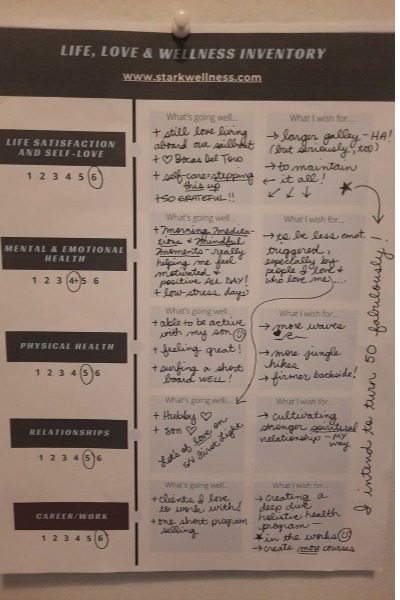 LIFE, LOVE & WELLNESS INVENTORY
www.starkwellness.com
LIFE SATISFACTION
AND SELF-LOVE
1 2 3 4 5 6
What's going well...
+ still love living
aboard our sailboat
+ ♡ Bocas Del Toro
+ self-care-stepping
this up
+SO GRATEFUL!!
What I wish for...
→ larger galley - HA!
(but seriously, too)
→ to maintain
it all!
MENTAL & EMOTIONAL
HEALTH
1 2 3 4+ 5 6
What's going well...
+ morning medita-
tions + mindful
moments - really
helping me feel
motivated +
positive ALL DAY!
+ low-stress days
What I wish for...
→ to be less emot.
triggered,
especially by
people I love +
who love me....
PHYSICAL HEALTH
1 2 3 4 5 6
What's going well...
+ able to be active
with my son
+ feeling great!
+ surfing a short
board WELL!
What I wish for...
→ more waves
→ more jungle
hikes
→ firmer backside!
RELATIONSHIPS
1 2 3 4 5 6
What's going well...
+ Hubby ♡
+ son ♡
Lots of love on
SV First Light
What I wish for...
→ cultivating
stronger spiritual
relationship - MY
way
CAREER/WORK
1 2 3 4 5 6
What's going well...
+ clients I love
to work with!
+ one short program
selling
What I wish for...
→ creating a
deep dive
holistic health
program -
★ in the works
→ create more courses
I intend to turn 50 fabulously!